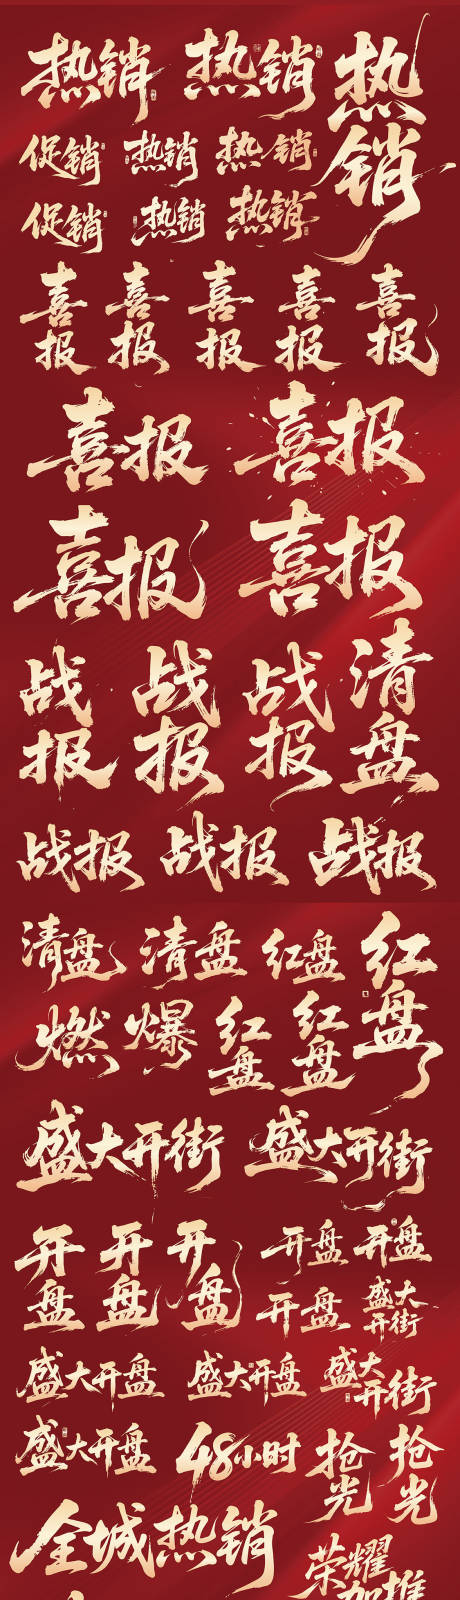 热销
热销
热销
促销
热销
热销
促销
热销
热销
喜报
喜报
喜报
喜报
喜报
喜报
喜报
喜报
喜报
战报
战报
战报
清盘
战报
战报
战报
清盘
清盘
红盘
红盘
燃
爆
红盘
红盘
盛大开街
盛大开街
开盘
开盘
开盘
开盘
开盘
开盘
盛大开街
盛大开盘
盛大开盘
盛大开街
盛大开盘
48小时
抢光
抢光
全城热销
荣耀
加推